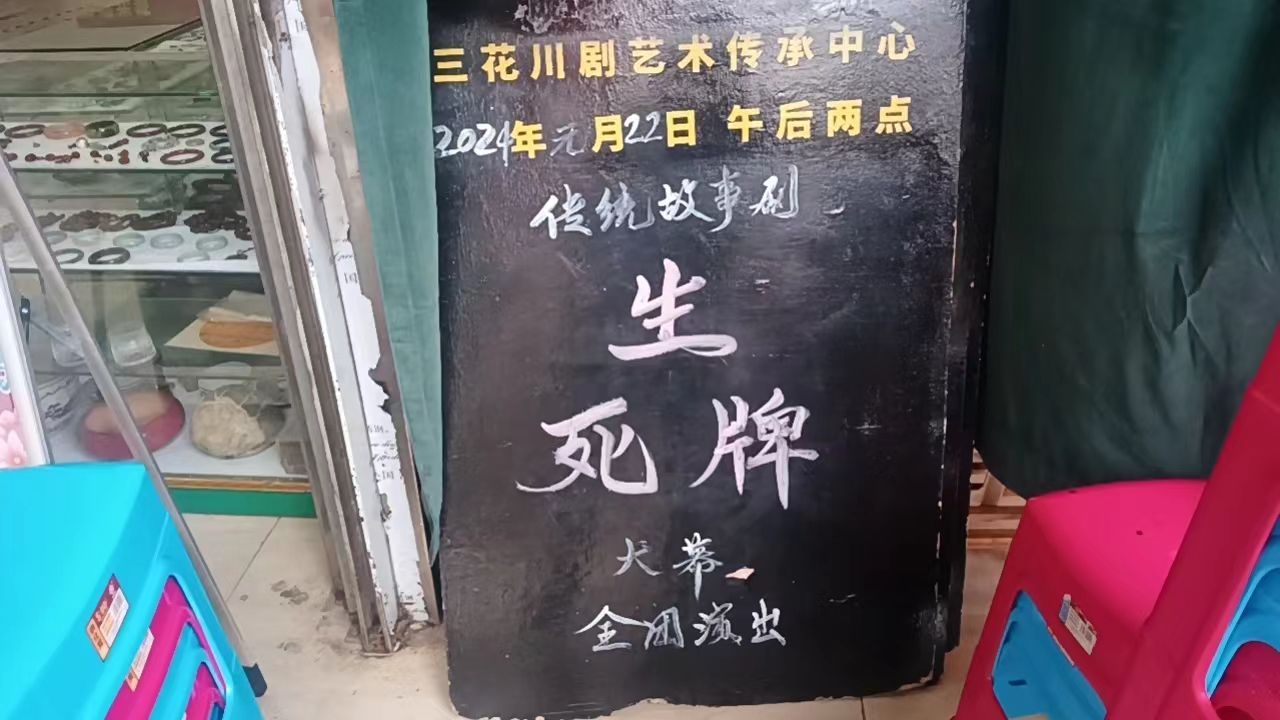 三花川剧艺术传承中心
2024年元月22日 午后两点
传统故事剧
生
死牌
大幕
全团演出